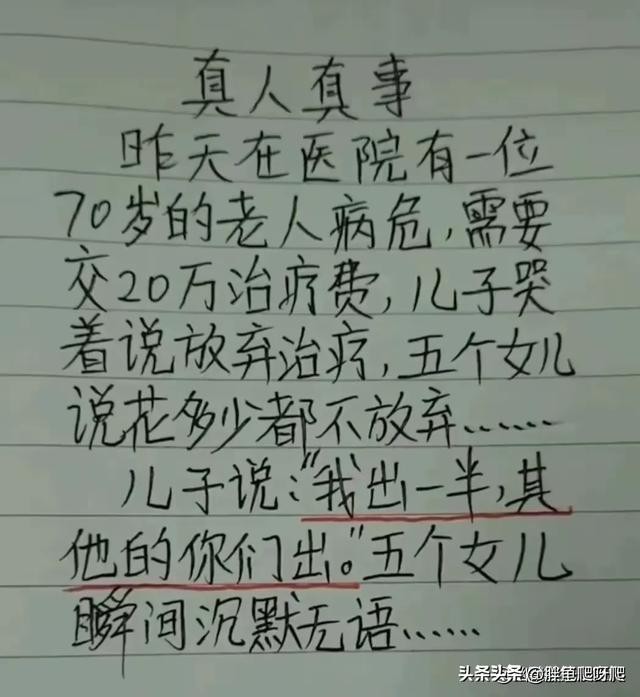 真人真事
昨天在医院有一位
70岁的老人病危,需要
交20万治疗费,儿子哭
着说放弃治疗,五个女儿
说花多少都不放弃……
儿子说:“我出一半,其
他的你们出。”五个女儿
瞬间沉默无语……
头条头条 @胖笛爬呀爬